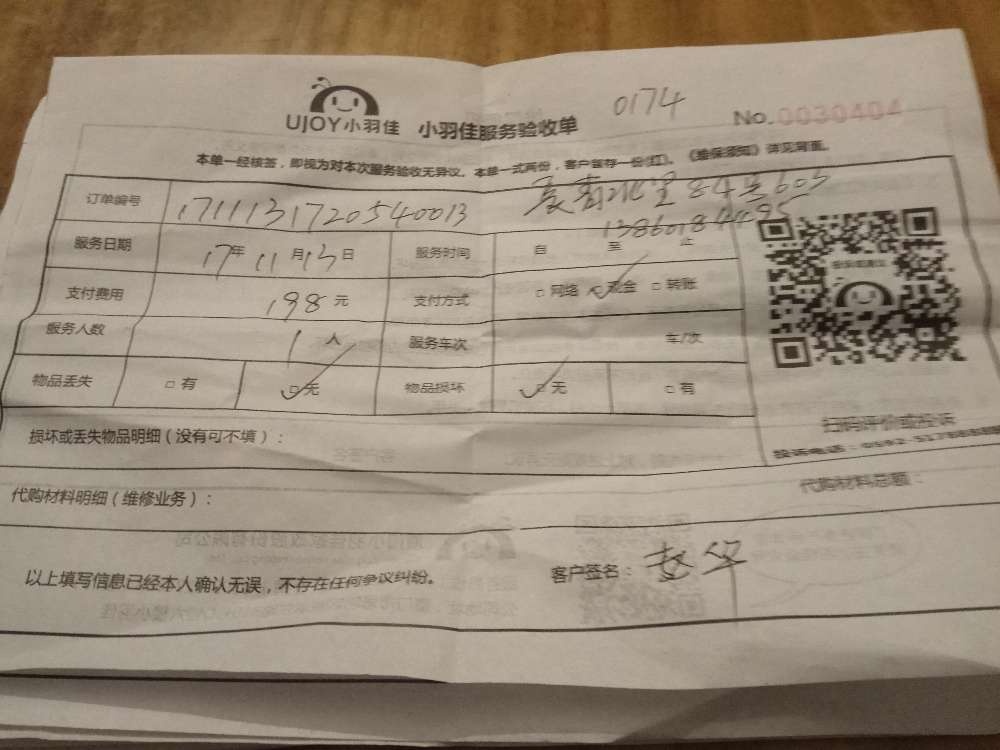 UJOY小羽佳 小羽佳服务验收单 0174 No.0030404
本单一经核签，即视为对本次服务验收无异议。本单一式两份，客户留存一份(红)。《维保须知》详见背面。
订单编号 17111317205400013
84号605
服务日期 17年11月13日 服务时间 自 至 止
支付费用 198元 支付方式 □网络 □现金 □转账
服务人数 1人 服务车次 车/次
物品丢失 □有 □无 物品损坏 □无 □有
扫码评价或投诉
投诉电话：0592-
损坏或丢失物品明细（没有可不填）：
代购材料明细（维修业务）： 代购材料总额：
以上填写信息已经本人确认无误，不存在任何争议纠纷。 客户签名：赵华